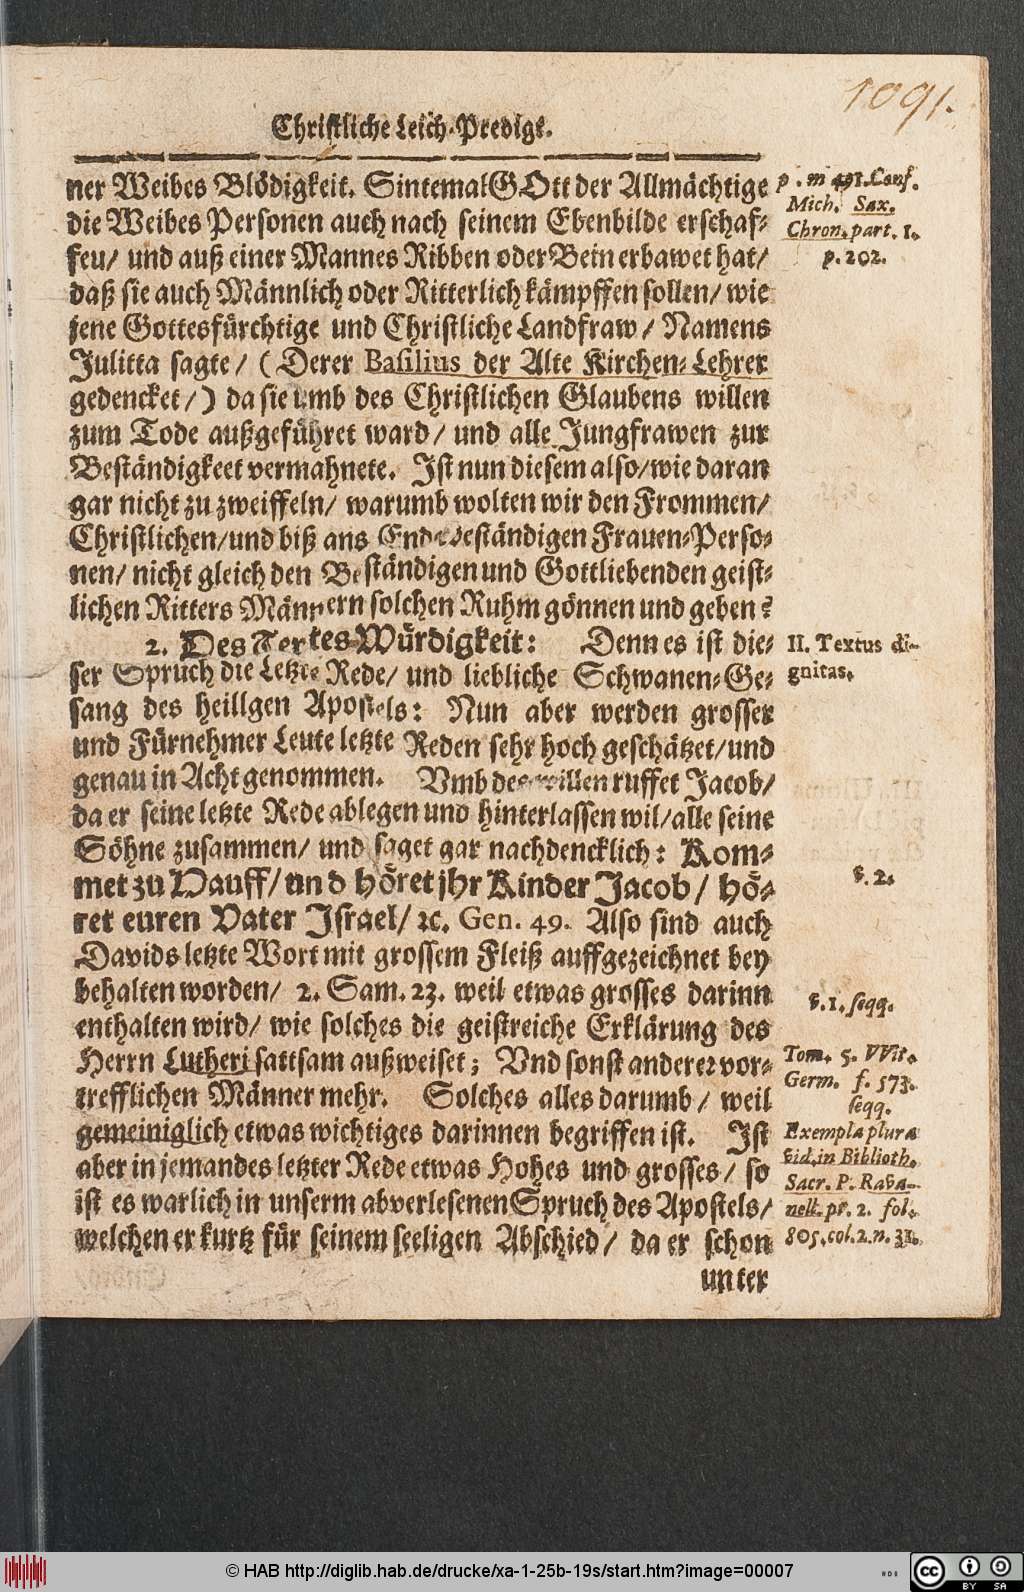 1091.
Christliche Leich-Predigt.
ner Weibes Blödigkeit. Sintemal GOtt der Allmächtige
die Weibes Personen auch nach seinem Ebenbilde erschaf-
feu/ und auß einer Mannes Ribben oder Bein erbawet hat/
daß sie auch Männlich oder Ritterlich kämpffen sollen/ wie
jene Gottesfürchtige und Christliche Landfraw/ Namens
Julitta sagte/ (Derer Basilius der Alte Kirchen-Lehrer
gedencket/) da sie umb des Christlichen Glaubens willen
zum Tode außgeführet ward/ und alle Jungfrawen zur
Beständigkeet vermahnete. Ist nun diesem also/ wie daran
gar nicht zu zweiffeln/ warumb wolten wir den Frommen/
Christlichen/ und biß ans Ende beständigen Frauen-Perso-
nen/ nicht gleich den Beständigen und Gottliebenden geist-
lichen Ritters Männern solchen Ruhm gönnen und geben?
2. Des Textes Würdigkeit: Denn es ist die-
ser Spruch die Letzte Rede/ und liebliche Schwanen-Ge-
sang des heillgen Apostels: Nun aber werden grosser
und Fürnehmer Leute letzte Reden sehr hoch geschätzet/ und
genau in Acht genommen. Vmb deswillen ruffet Jacob/
da er seine letzte Rede ablegen und hinterlassen wil/ alle seine
Söhne zusammen/ und saget gar nachdencklich: Kom-
met zu Hauff/ und höret jhr Kinder Jacob/ hö-
ret euren Vater Israel/ ꝛc. Gen. 49. Also sind auch
Davids letzte Wort mit grossem Fleiß auffgezeichnet bey
behalten worden/ 2. Sam. 23. weil etwas grosses darinn
enthalten wird/ wie solches die geistreiche Erklärung des
Herrn Lutheri sattsam außweiset; Vnd sonst anderer vor-
trefflichen Männer mehr. Solches alles darumb/ weil
gemeiniglich etwas wichtiges darinnen begriffen ist. Ist
aber in jemandes letzter Rede etwas Hohes und grosses/ so
ist es warlich in unserm abverlesenen Spruch des Apostels/
welchen er kurtz für seinem seeligen Abschied/ da er schon
unter
p. m 491. Conf.
Mich. Sax.
Chron. part. 1.
p. 202.
II. Textus di-
gnitas.
v. 2.
v. 1. seqq.
Tom. 5. VVit.
Germ. f. 573.
seqq.
Exempla plura
vid. in Biblioth.
Sacr. P. Rava-
nell. pt. 2. fol.
805. col. 2. n. 31.
© HAB http://diglib.hab.de/drucke/xa-1-25b-19s/start.htm?image=00007
HAB
CC BY SA